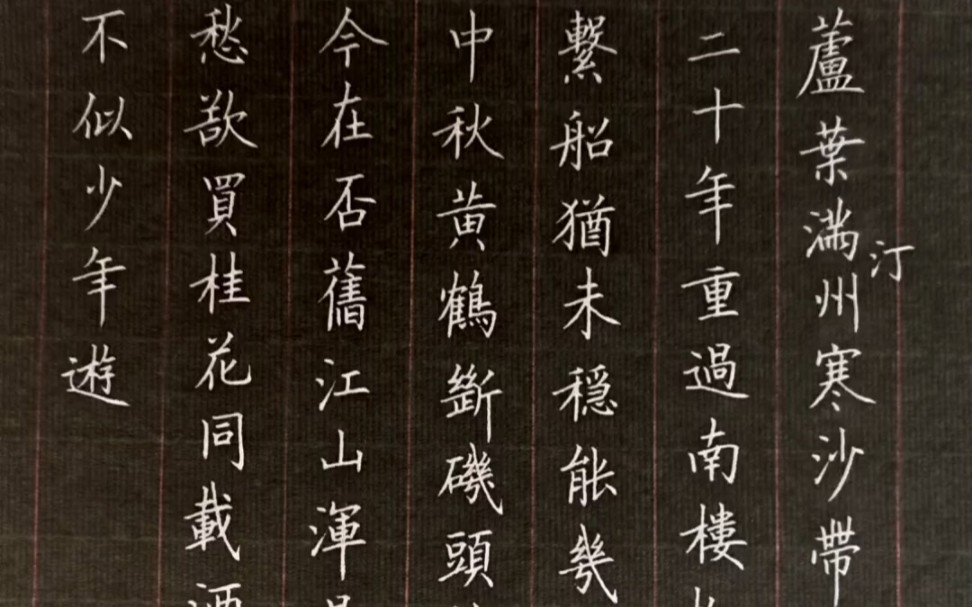 蘆葉滿汀州寒沙帶
二十年重過南樓
繫船猶未穩能幾
中秋黃鶴斷磯頭
今在否舊江山渾
愁欲買桂花同載酒
不似少年遊